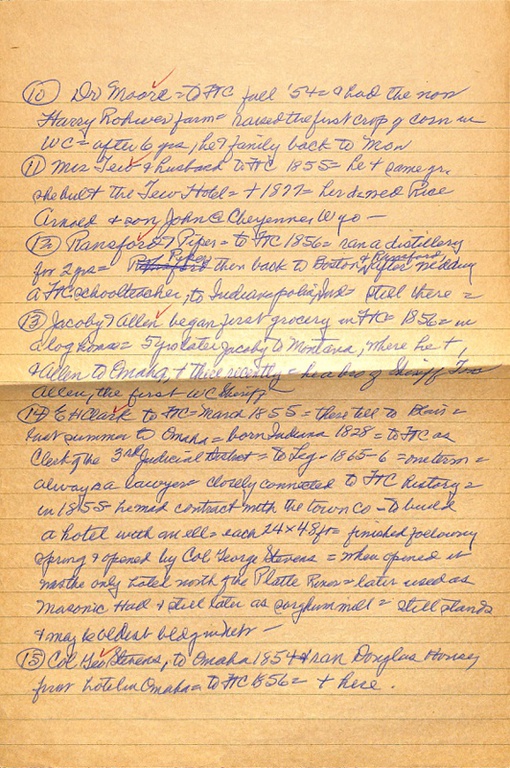 (10) Dr Moore = to FtC fall '54 = & had the now
Harry Rohwer farm = raised the first crop of corn in
WC = after 6 yrs, he & family back to Mon
(11) Mrs Tew & husband to FtC 1855 = he + same yr.
she built the Tew Hotel = + 1877 = her d. med Rice
Arnold & son John @ Cheyenne, Wyo —
(12) Ransford & Piper = to FtC 1856 = ran a distillery
for 2 yrs = Piper then back to Boston, & Ransford, after wedding
a FtC schoolteacher, to Indianapolis, Ind = still there =
(13) Jacoby & Allen began first grocery in FtC = 1856 = in
a log house = 5 yrs later Jacoby to Montana, where he +,
& Allen to Omaha, + there recently = he a bro of Sheriff Tom
Allen, the first WC Sheriff —
(14) E H Clark to FtC = March 1855 = there till to Blair =
last summer to Omaha = born Indiana 1828 = to FtC as
Clerk of the 3rd Judicial District = to Leg - 1865-6 = one term =
always a lawyer closely connected to FtC History =
in 1855 he mad contract with the town co - to build
a hotel with an ell = each 24 x 48 ft = finished following
spring & opened by Col George Stevens = when opened it
was the only hotel north of the Platte River = later used as
Masonic Hall & still later as sorghum mill = still stands
& may be oldest bldg in Neb —
(15) Col Geo Stevens, to Omaha 1854 & ran Douglas House,
first hotel in Omaha = to FtC 1856 = + here.